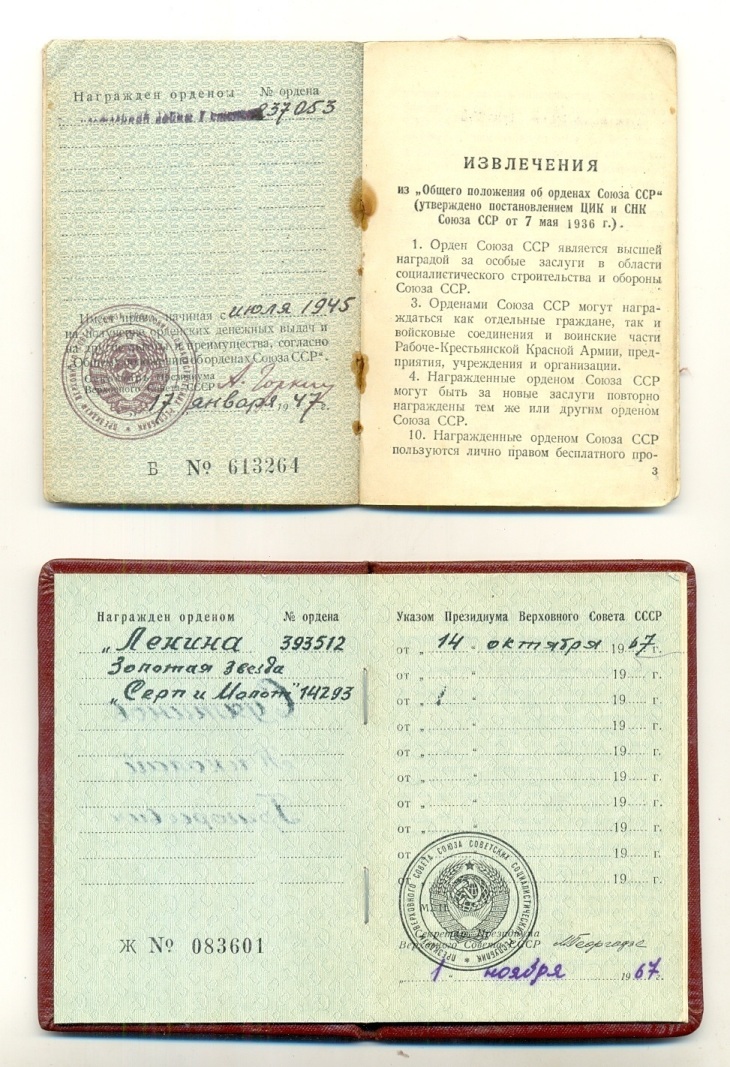 Награжден орденом № ордена
войны I 237053
Имеет право, начиная с июля 1945
на получение орденских денежных выдач и
на другие льготы и преимущества, согласно
"Общему положению об орденах Союза ССР".
Секретарь Президиума
Верховного Совета СССР А. Горкин
17 января 1947 г.
В № 613264
ИЗВЛЕЧЕНИЯ
из „Общего положения об орденах Союза ССР“
(утверждено постановлением ЦИК и СНК
Союза ССР от 7 мая 1936 г.).
1. Орден Союза ССР является высшей
наградой за особые заслуги в области
социалистического строительства и обороны
Союза ССР.
3. Орденами Союза ССР могут награ-
ждаться как отдельные граждане, так и
войсковые соединения и воинские части
Рабоче-Крестьянской Красной Армии, пред-
приятия, учреждения и организации.
4. Награжденные орденом Союза ССР
могут быть за новые заслуги повторно
награждены тем же или другим орденом
Союза ССР.
10. Награжденные орденом Союза ССР
пользуются лично правом бесплатного про-
3
Награжден орденом № ордена
„Ленина 393512
Золотая звезда
„Серп и Молот" 14293
Ж № 083601
Указом Президиума Верховного Совета СССР
от „ 14 " октября 1967 г.
от „ " 19 г.
от „ " 19 г.
от „ " 19 г.
от „ " 19 г.
от „ " 19 г.
от „ " 19 г.
от „ " 19 г.
от „ " 19 г.
от „ " 19 г.
ПРЕЗИДИУМ ВЕРХОВНОГО СОВЕТА СОЮЗА СОВЕТСКИХ СОЦИАЛИСТИЧЕСКИХ РЕСПУБЛИК
М.П.
Секретарь Президиума
Верховного Совета СССР М. Георгадзе
„ 1 " ноября 1967 г.